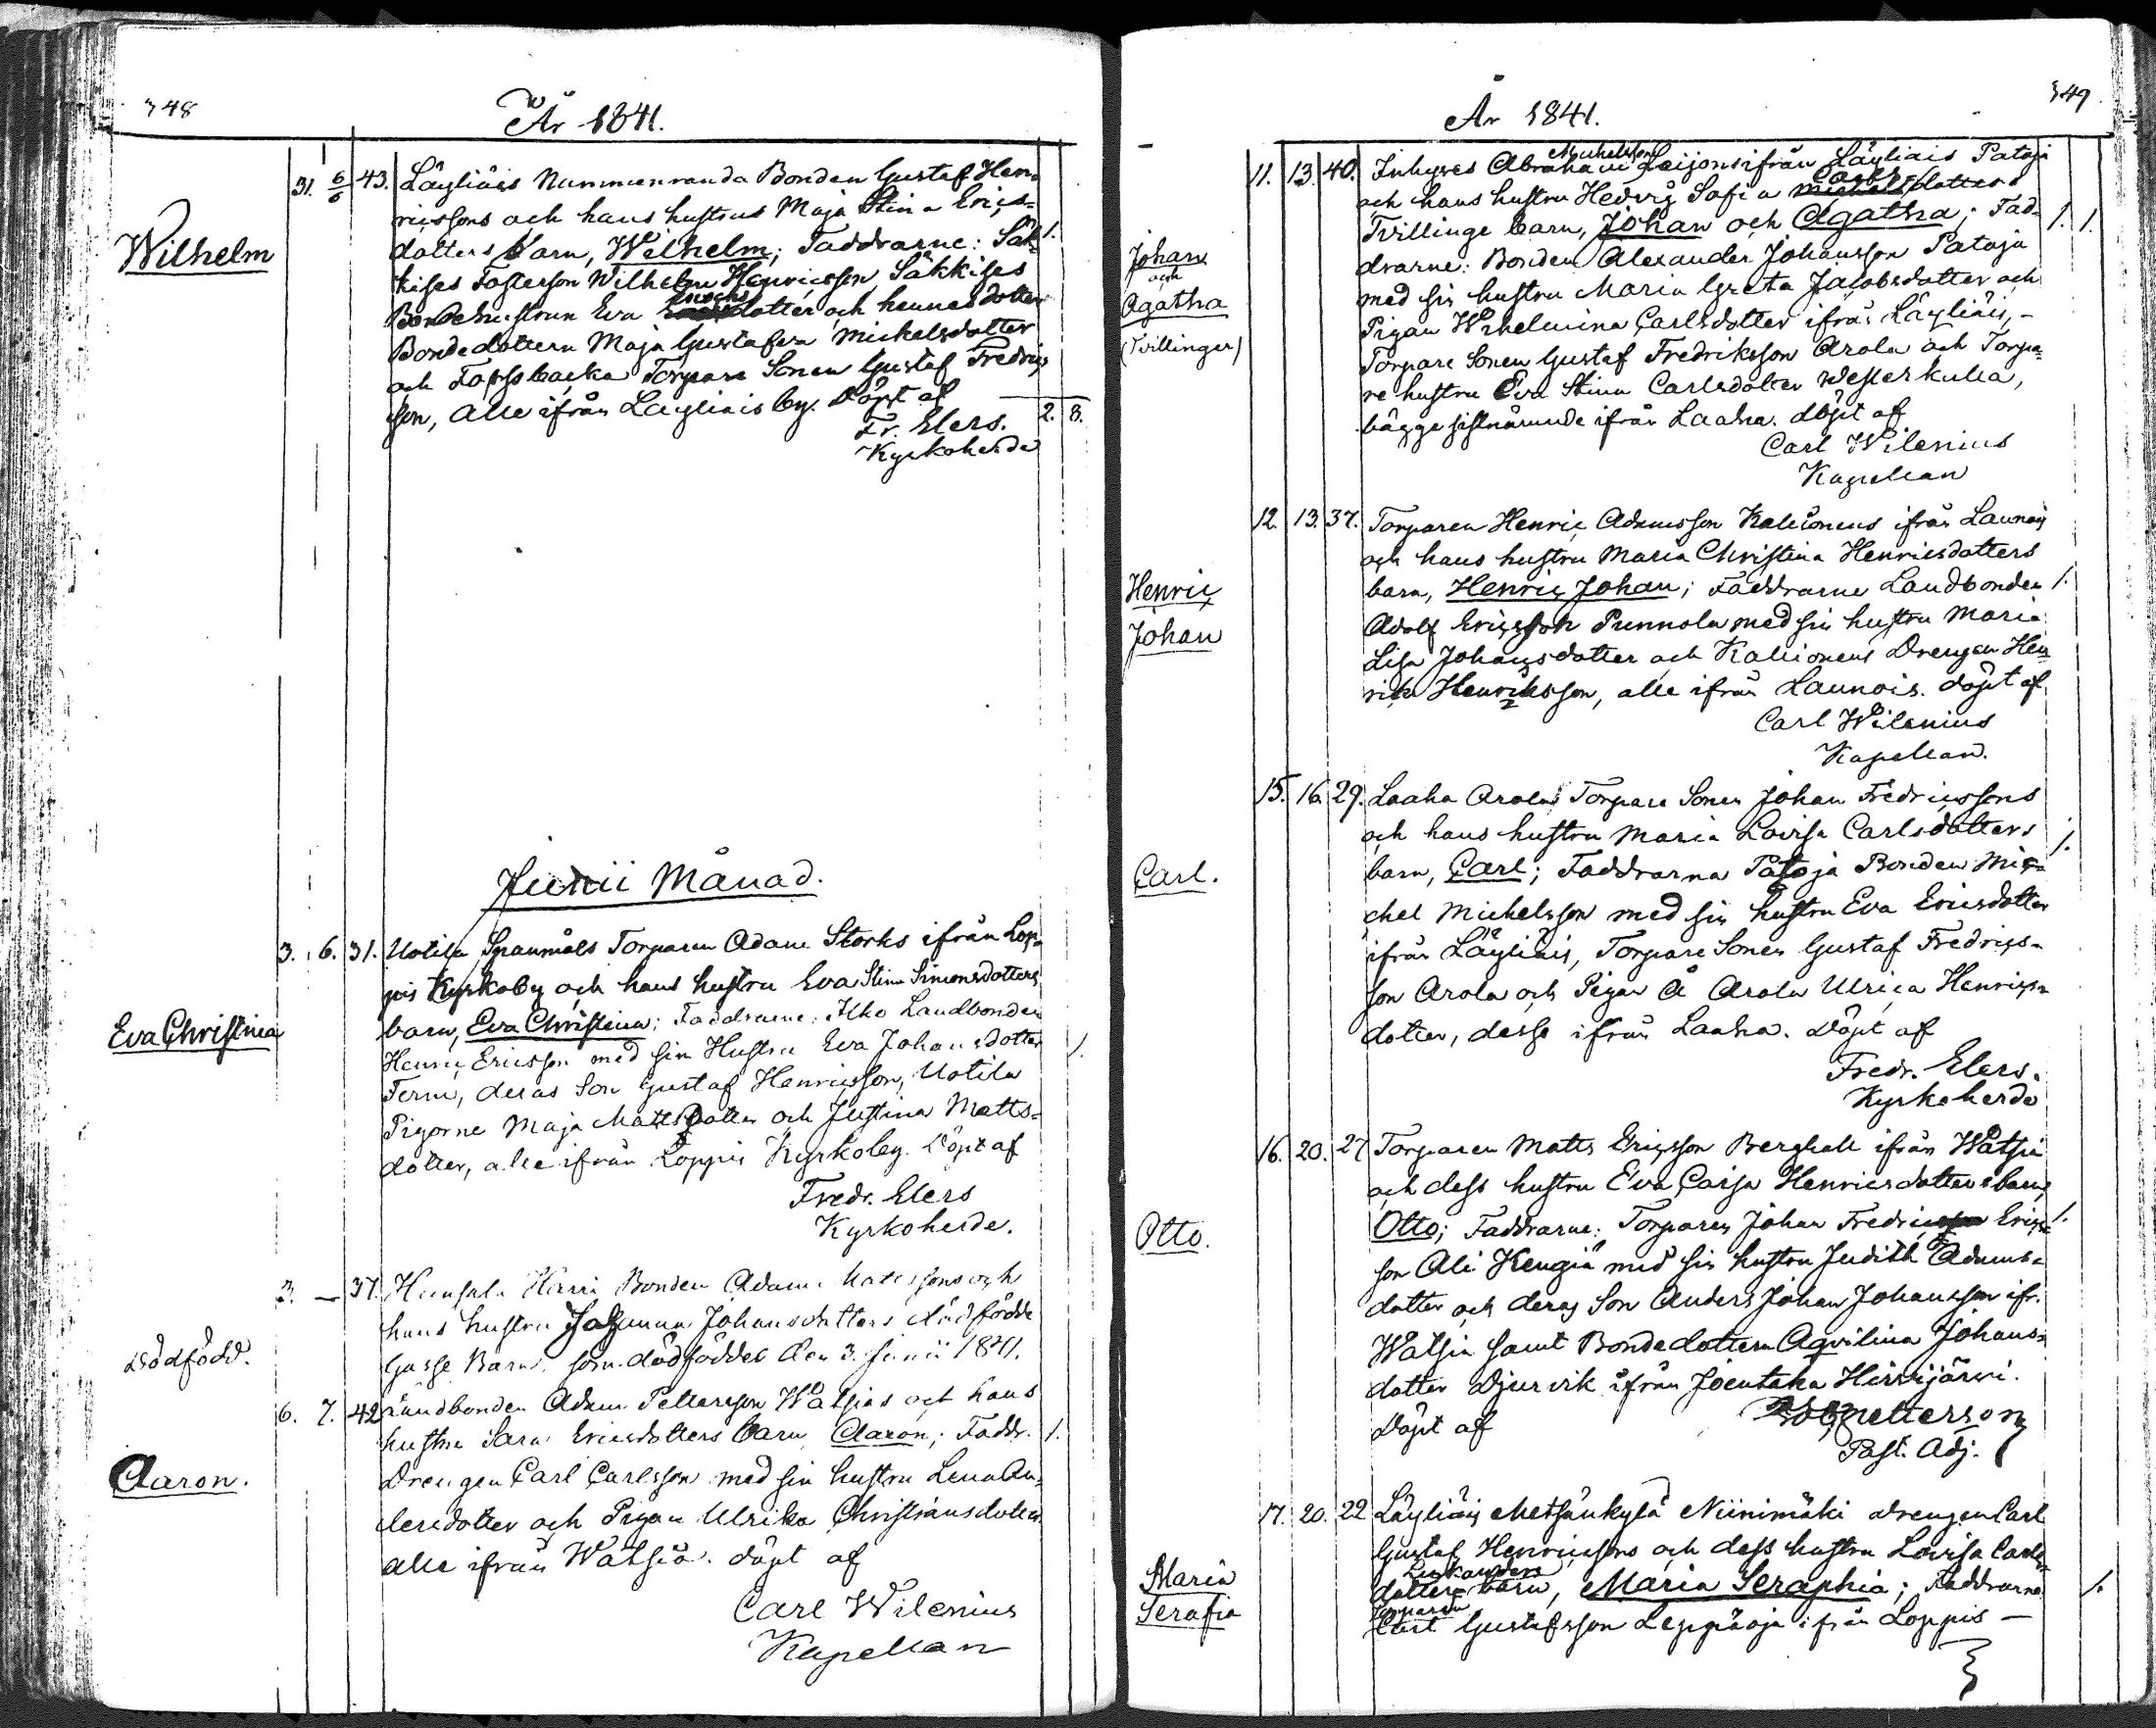 348
År 1841.
Wilhelm
31. 6/6 43. Läyliäis Nummenranda Bonden Gustaf Hen-
ricssons och hans hustrus Maja Stina Erics-
dotters barn, Wilhelm; Faddrarne: Säk- 1.
kises Fosterson Wilhelm Henricsson, Säkkises
Bondehustrun Eva Enochsdotter och hennes dotter
Bondedottern Maja Gustafva Michelsdotter
och Forssbacka Torpare Sonen Gustaf Fredrics-
son, alle ifrån Läyliäis by. Döpt af 2. 8.
Fr. Elers.
Kyrkoherde
Junii Månad.
Eva Christina
3. 6. 31. Uotila Spannmåls Torparen Adam Storks ifrån Lop-
pis Kyrkoby och hans hustru Eva Stina Simonsdotters
barn, Eva Christina; Faddrarne: Ilko Landbonden
Henric Ericsson med sin Hustru Eva Johansdotter 1.
Ferm, deras Son Gustaf Henricsson, Uotila
Pigorne Maja Mattsdotter och Justina Matts-
dotter, alle ifrån Loppis Kyrkoby. Döpt af
Fredr. Elers
Kyrkoherde.
Dödfödd.
3. — 37. Hunsala Harri Bonden Adam Matessons och
hans hustru Johanna Johansdotters dödfödde
Gosse Barn, som dödföddes den 3. Junii 1841.
Aaron.
6. 7. 42 Landbonden Adam Pettersson Watsias och hans
hustru Sara Ericsdotters barn Aaron; Faddr. 1.
Drengen Carl Carlsson med sin hustru Lena An-
dersdotter och Pigan Ulrika Christiansdotter
alle ifrån Watsiä. döpt af
Carl Wilenius
Kapellan
349.
År 1841.
Johan
och
Agatha
(Tvillinger)
Michelsson
11. 13. 40. Inhyses Abraham Leijons ifrån Läyliäis Pataja
Carls
och hans hustru Hedvig Sofia Michelsdotters
Tvillinge barn, Johan och Agatha; Fad- 1. 1.
drarne: Bonden Alexander Johansson Pataja
med sin hustru Maria Greta Jacobsdotter och
Pigan Wilhelmina Carlsdotter ifrån Läyliäis, -
Torpare Sonen Gustaf Fredriksson Arola och Torpa-
re hustru Eva Stina Carlsdotter Westerkulla,
bägge sistnämnde ifrån Laaka. döpt af
Carl Wilenius
Kapellan
Henric
Johan
12. 13. 37. Torparen Henric Adamsson Kallionens ifrån Launois
och hans hustru Maria Christina Henricsdotters
barn, Henric Johan; Faddrarne Landbonden 1.
Adolf Ericsson Punnola med sin hustru Maria
Lisa Johansdotter och Kallionens Drengen Hen-
rik Henriksson, alle ifrån Launois. döpt af
Carl Wilenius
Kapellan.
Carl.
15. 16. 29. Laaka Arolas Torpare Sonen Johan Fredricssons
och hans hustru Maria Lovisa Carlsdotters 1.
barn, Carl; Faddrarna Pataja Bonden Mi-
chel Michelsson med sin hustru Eva Ericsdotter
ifrån Läyliäis, Torpare Sonen Gustaf Fredrics-
son Arola och Pigan Å Arola Ulrica Henrics-
dotter, desse ifrån Laaka. Döpt af
Fredr. Elers.
Kyrkoherde
Otto.
16. 20. 27 Torparen Matts Ericsson Berghäll ifrån Watsiä
och dess hustru Eva Caisa Henricsdotters barn,
Otto; Faddrarne: Torparen Johan Fredric Erics- 1.
son Ali Kengiä med sin hustru Judith Adams-
dotter och deras Son Anders Johan Johansson ifr.
Watsiä samt Bondedottern Aqvilina Johans-
dotter Djurvik ifrån Joentaka Hirvijärvi.
Döpt af petterson
Past. Adj.
Maria
Serafia
17. 20. 22 Läyliäis Metsänkylä Niinimäki drengen Carl
Gustaf Henricssons och dess hustru Lovisa Carls-
dotters barn, Maria Seraphia; Faddrarne 1.
Torparen
Carl Gustafsson Leppäoja ifrån Loppis —